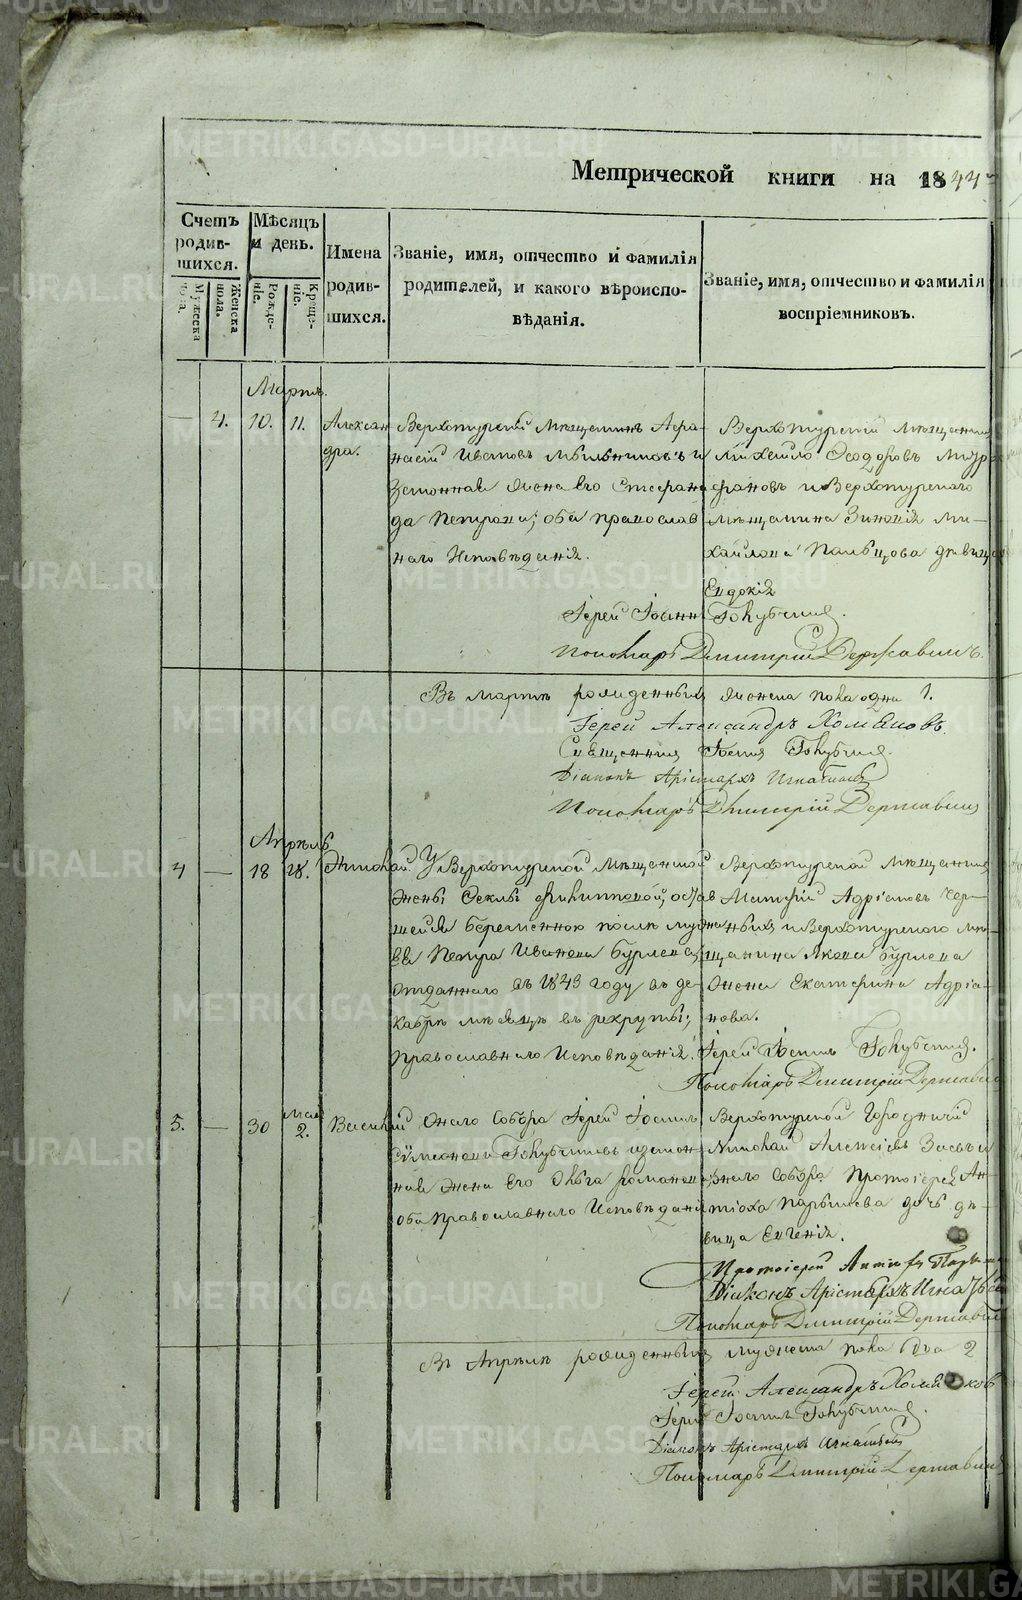 METRIKI.GASO-URAL.RU
Метрической книги на 1844
Счетъ родив-шихся.
Мужеска пола.
Женска пола.
Мѣсяцъ и день.
Рожде-ніе.
Креще-ніе.
Имена родив-шихся.
Званіе, имя, отчество и фамилія
родителей, и какого вѣроиспо-
вѣданія.
Званіе, имя, отчество и фамилія
воспріемниковъ.
Мартъ.
— 4. 10. 11. Алексан-
дра.
Верхотурскій мѣщанинъ Афа-
насій Ивановъ Мѣльниковъ и
Законная Жена его Степани
да Петрова; оба православ
наго Исповѣданія.
Верхотурскій мѣщанинъ
Михайло Ѳеодоровъ
и Верхотурскаго
мѣщанина Зиновія Ми-
хайлова Пальцова дѣвица
Евдокія
Іерей Іоаннъ Голубчиковъ.
Пономарь Дмитрій Державинъ.
Въ Мартѣ рожденныхъ женска пола одна 1.
Іерей Александръ Хомяковъ.
Священникъ Голубчиковъ.
Діаконъ Арістархъ Игнатьевъ
Пономарь Дмитрій Державинъ
Апрѣль
4 — 18 18. Николай.
У Верхотурской мѣщанской
жены Ѳеклы Филипповой, остав
шейся беременною послѣ мужа
ея Петра Иванова Бурлева,
отданнаго въ 1843 году въ де-
кабрѣ мѣсяцѣ въ рекруты;
православнаго Исповѣданія.
Верхотурской мѣщанинъ
Матфій Адріановъ Чер-
ныхъ и Верхотурскаго мѣ-
щанина Якова Бурлева
Жена Екатерина Адріа-
нова.
Іерей Голубчиковъ.
Пономарь Дмитрій Державинъ
5. — 30 Мая 2. Василій
Онаго Собора Іерей
Сѵмеоновъ Голубчиковъ и закон-
ная жена его Ольга Романова
оба православнаго Исповѣданія
Верхотурской Городничій
Николай Алексіевъ
онаго Собора Протоіерея Ан-
тіоха Парышева дочь дѣ-
вица Евгенія.
Протоіерей Антіохъ
Діаконъ Арістархъ Игнатьевъ
Пономарь Дмитрій Державинъ
Въ Апрѣлѣ рожденныхъ мужеска пола два 2
Іерей Александръ Хомяковъ
Іерей Голубчиковъ.
Діаконъ Арістархъ Игнатьевъ
Пономарь Дмитрій Державинъ